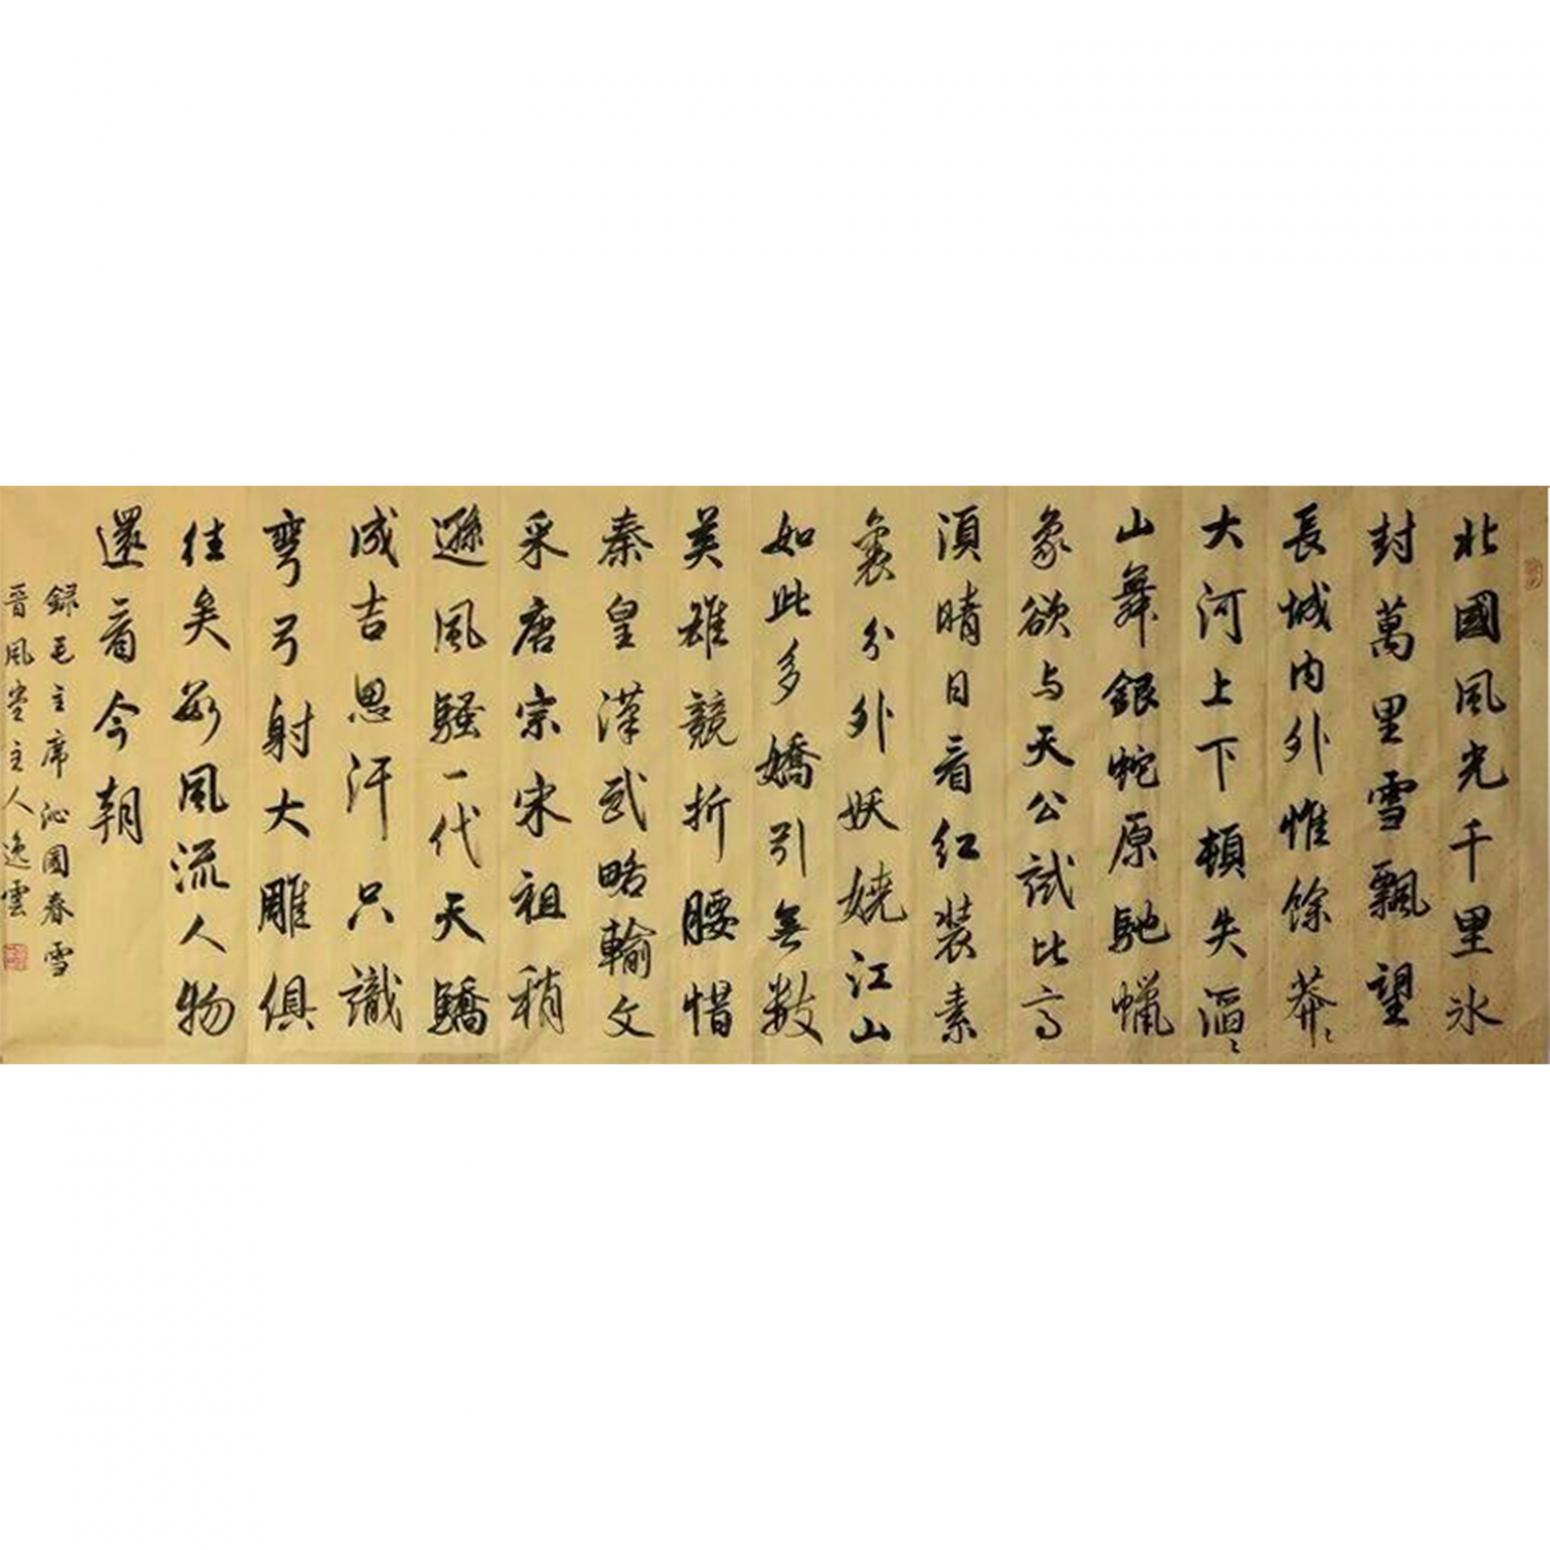 北國風光千里氷
封萬里雪飄望
長城内外惟餘莽〻
大河上下頓失滔〻
山舞銀蛇原馳蠟
象欲与天公試比高
須晴日看红装素
裹分外妖娆江山
如此多嬌引無数
英雄競折腰惜
秦皇漢武略輸文
采唐宗宋祖稍
遜風騷一代天驕
成吉思汗只識
彎弓射大雕俱
往矣數風流人物
還看今朝
録毛主席沁園春雪
晉風堂主人逸雲